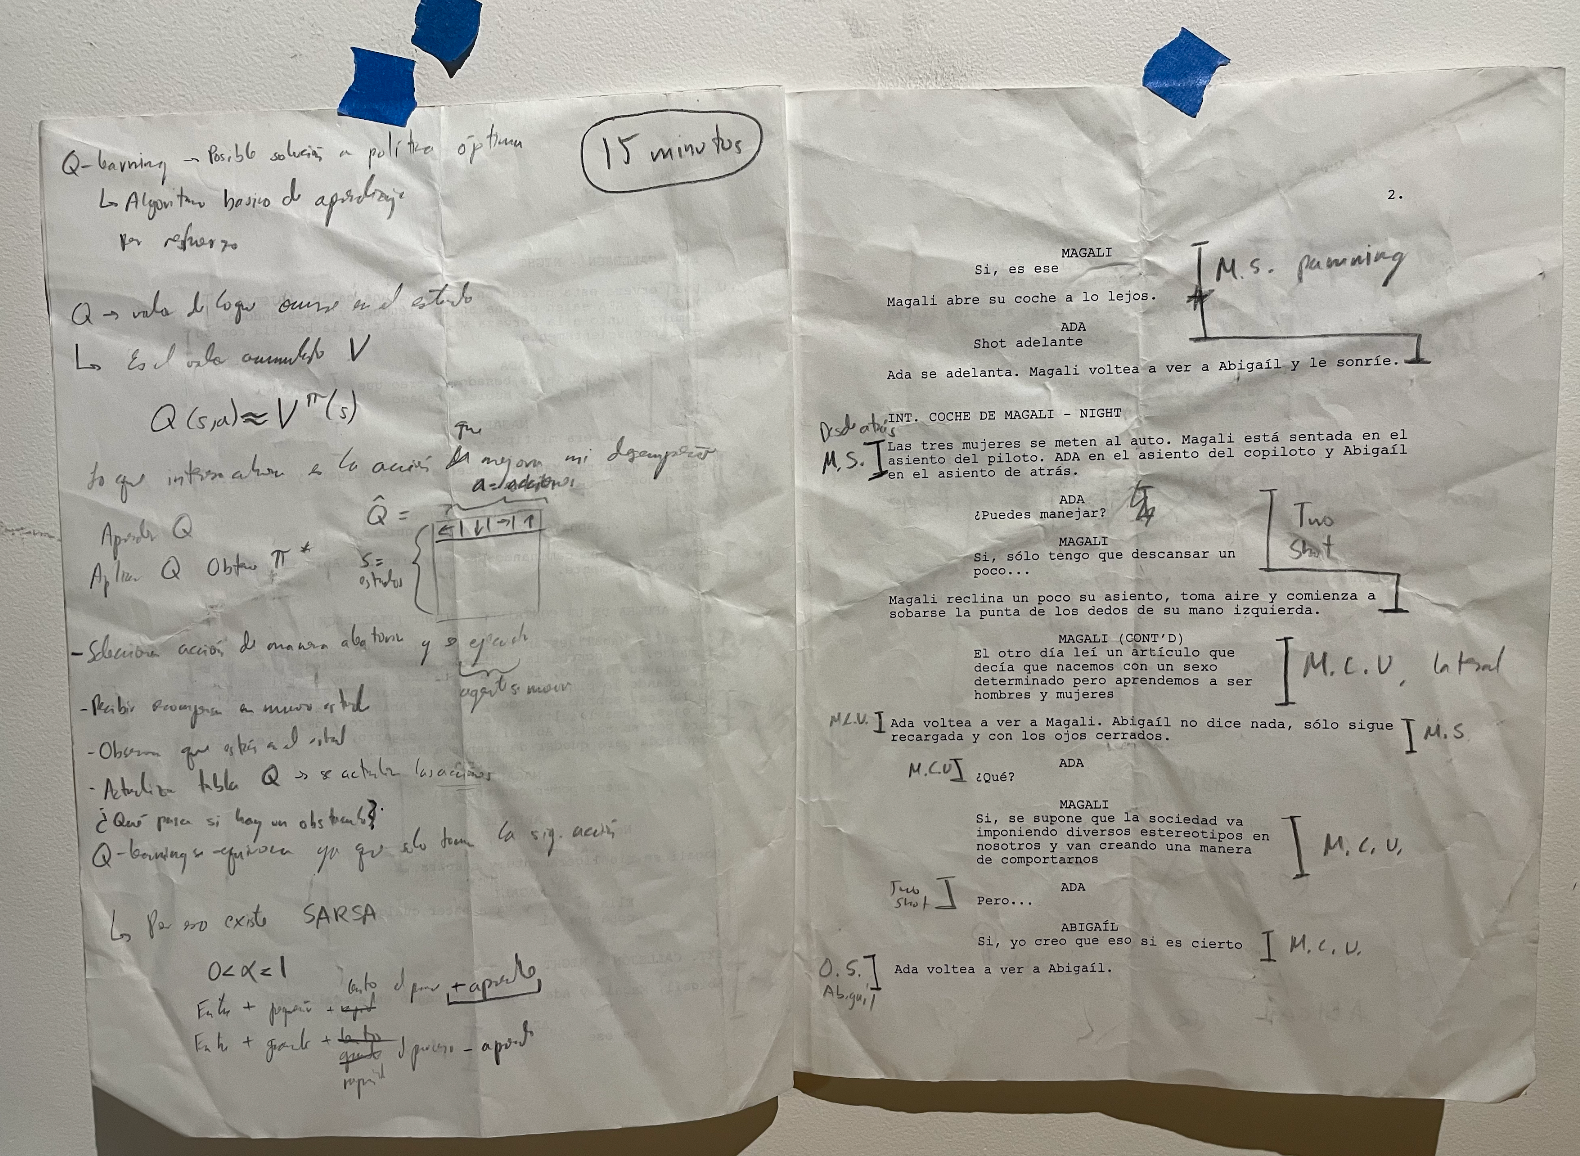 15 minutos
Q-learning → Posible solución a política óptima
↳ Algoritmo basico de aprendizaje
por refuerzo
Q → valor de lo que ocurre en el estado
↳ Es el valor acumulado V
Q(s,a) ≈ V^π(s)
que
Lo que interesa ahora es la acción mejora mi desempeño
a = acciones
Aprender Q
Q̂ =
← ↓ → ↑
s =
estados
Aplicar Q Obtener π*
- Selecciona acción de manera aleatoria y se ejecuta
agente se mueve
- Recibir recompensa en nuevo estado
- Observa que estás en el estado
- Actualiza tabla Q → se actualizan las acciones
¿Qué pasa si hay un obstaculo?
Q-learning se equivoca ya que solo toma la sig. acción
↳ Por eso existe SARSA
0 < α < 1
lento el proceso + aprendo
Entre + pequeño +
Entre + grande + el proceso - aprendo
rapido
2.
MAGALI
Si, es ese
M.S. pamning
Magali abre su coche a lo lejos.
ADA
Shot adelante
Ada se adelanta. Magali voltea a ver a Abigaíl y le sonríe.
INT. COCHE DE MAGALI - NIGHT
Desde atrás
M.S.
Las tres mujeres se meten al auto. Magali está sentada en el
asiento del piloto. ADA en el asiento del copiloto y Abigaíl
en el asiento de atrás.
ADA
¿Puedes manejar?
Two
Shot
MAGALI
Si, sólo tengo que descansar un
poco...
Magali reclina un poco su asiento, toma aire y comienza a
sobarse la punta de los dedos de su mano izquierda.
MAGALI (CONT'D)
El otro día leí un artículo que
decía que nacemos con un sexo
determinado pero aprendemos a ser
hombres y mujeres
M.C.U. lateral
M.C.U.
Ada voltea a ver a Magali. Abigaíl no dice nada, sólo sigue
recargada y con los ojos cerrados.
M.S.
M.C.U
ADA
¿Qué?
MAGALI
Si, se supone que la sociedad va
imponiendo diversos estereotipos en
nosotros y van creando una manera
de comportarnos
M.C.U.
Two
shot
ADA
Pero...
ABIGAÍL
Si, yo creo que eso si es cierto
M.C.U.
O.S.
Abigaíl
Ada voltea a ver a Abigaíl.